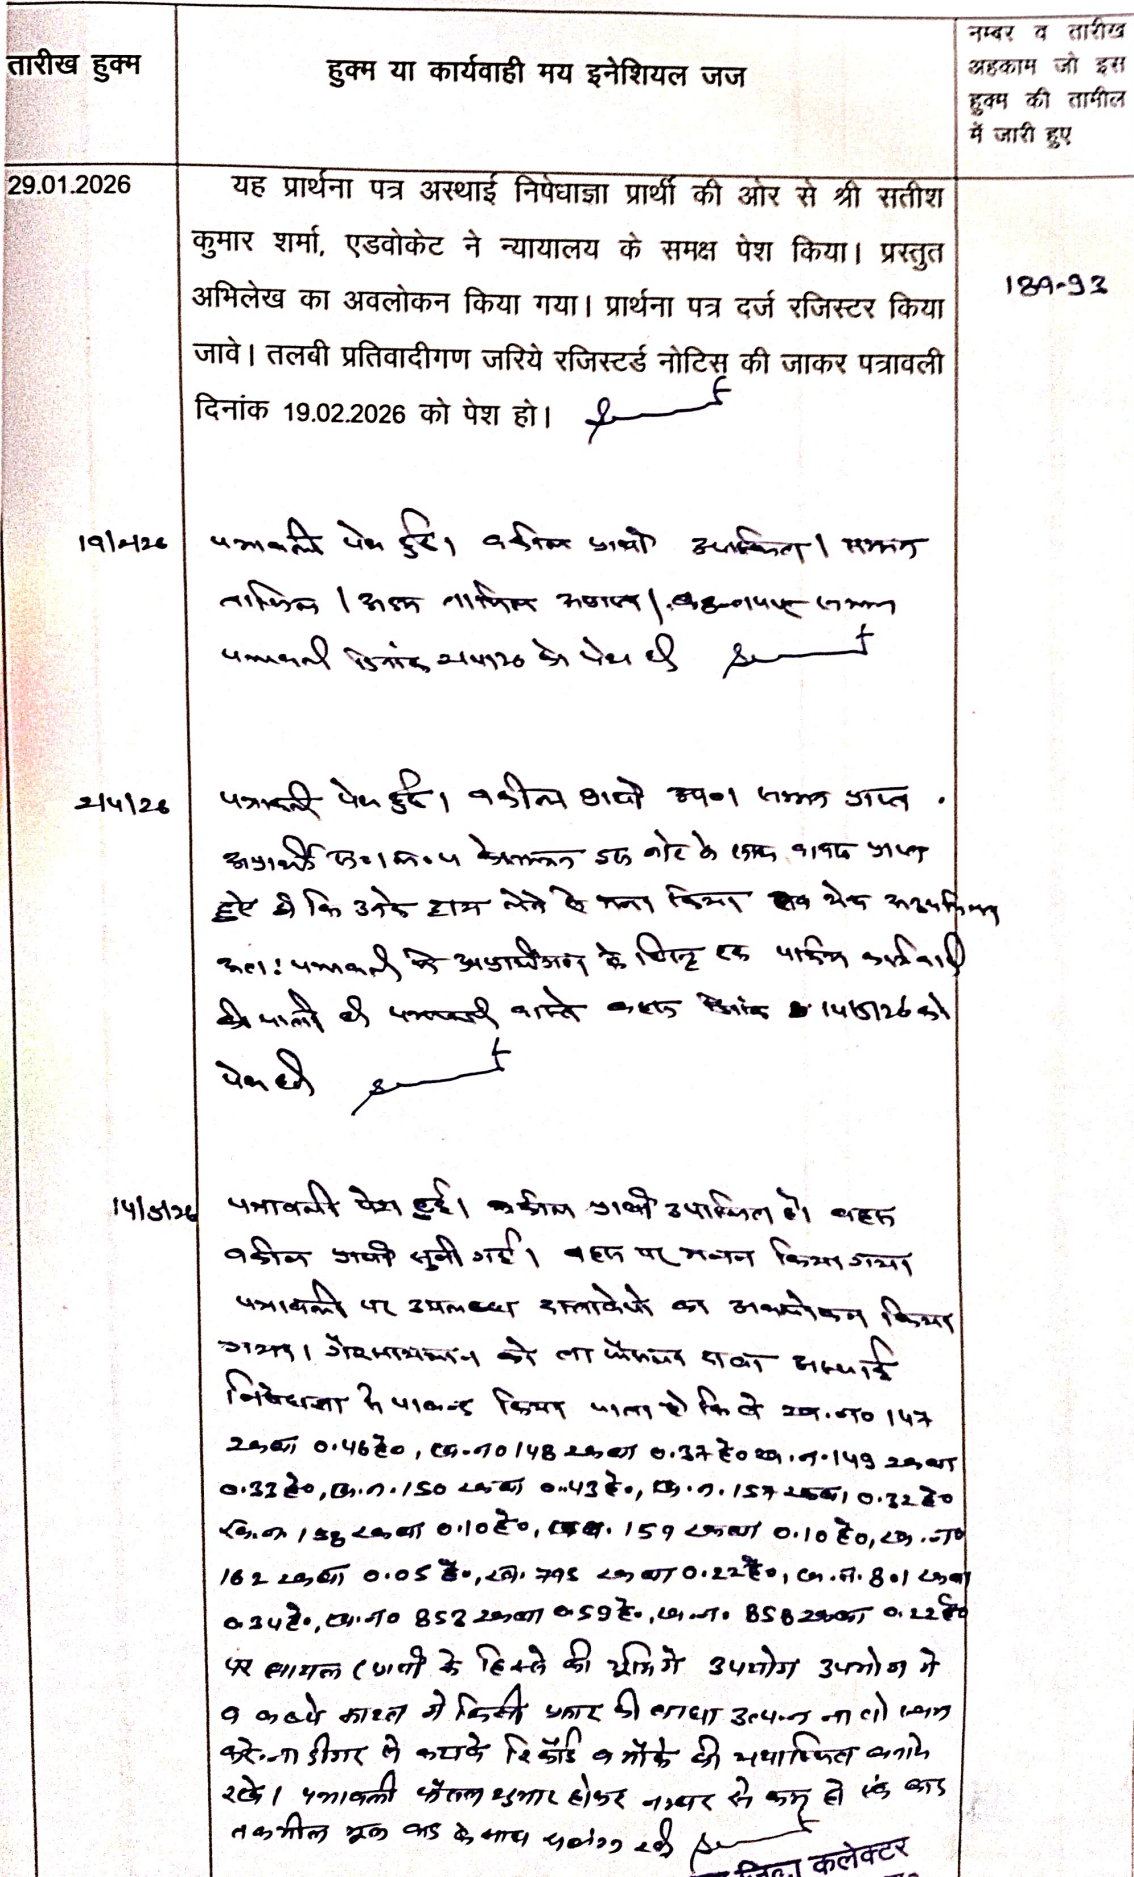 तारीख हुक्म
हुक्म या कार्यवाही मय इनेशियल जज
नम्बर व तारीख
अहकाम जो इस
हुक्म की तामील
में जारी हुए
29.01.2026
यह प्रार्थना पत्र अस्थाई निषेधाज्ञा प्रार्थी की ओर से श्री सतीश
कुमार शर्मा, एडवोकेट ने न्यायालय के समक्ष पेश किया। प्रस्तुत
अभिलेख का अवलोकन किया गया। प्रार्थना पत्र दर्ज रजिस्टर किया
जावे। तलबी प्रतिवादीगण जरिये रजिस्टर्ड नोटिस की जाकर पत्रावली
दिनांक 19.02.2026 को पेश हो।
189-93
पत्रावली पेश हुई। वकील प्रार्थी उपस्थित।
तामिल। अदम तामिल
पत्रावली दिनांक 2/4/26 को पेश हो
2/4/26
पत्रावली पेश हुई। वकील प्रार्थी उप०। सम्मन प्राप्त
हुए है कि उनके द्वारा लेने से मना किया
अतः पत्रावली में अप्रार्थीगण के विरुद्ध एक पक्षीय कार्यवाही
की जाती है पत्रावली वास्ते बहस दिनांक 14/5/26 को
पेश हो
14/5/26
पत्रावली पेश हुई। वकील प्रार्थी उपस्थित है। बहस
वकील प्रार्थी सुनी गई। बहस पर मनन किया गया
पत्रावली पर उपलब्ध दस्तावेजो का अवलोकन किया
गया। गैरसायलान को ता फैसला दावा अस्थाई
निषेधाज्ञा से पाबन्द किया जाता है कि वे ख.न० 147
रकबा 0.46 है०, ख.न० 148 रकबा 0.37 है० ख.न. 149 रकबा
0.33 है०, ख.न. 150 रकबा 0.43 है०, ख.न. 157 रकबा 0.32 है०
ख.न. 158 रकबा 0.10 है०, ख.न. 159 रकबा 0.10 है०, ख.न०
162 रकबा 0.05 है०, ख.न. 795 रकबा 0.22 है०, ख.न. 801 रकबा
0.34 है०, ख.न० 852 रकबा 0.59 है०, ख.न. 858 रकबा 0.22 है०
पर सायल / प्रार्थी के हिस्से की भूमि में उपयोग उपभोग मे
व कब्जे काश्त में किसी प्रकार की बाधा उत्पन्न ना तो स्वयं
करे ना दीगर से करावे रिकॉर्ड व मौके की यथास्थिति बनाये
रखे। पत्रावली फैसल शुमार होकर नम्बर से कम हो एवं बाद
तकमील मूल वाद के साथ संलग्न रहे
जिला कलेक्टर